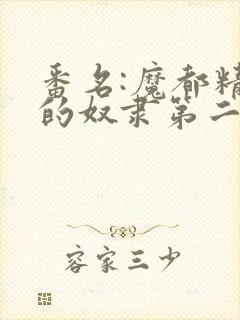 番名:魔都精
的奴隶第二
容家三少